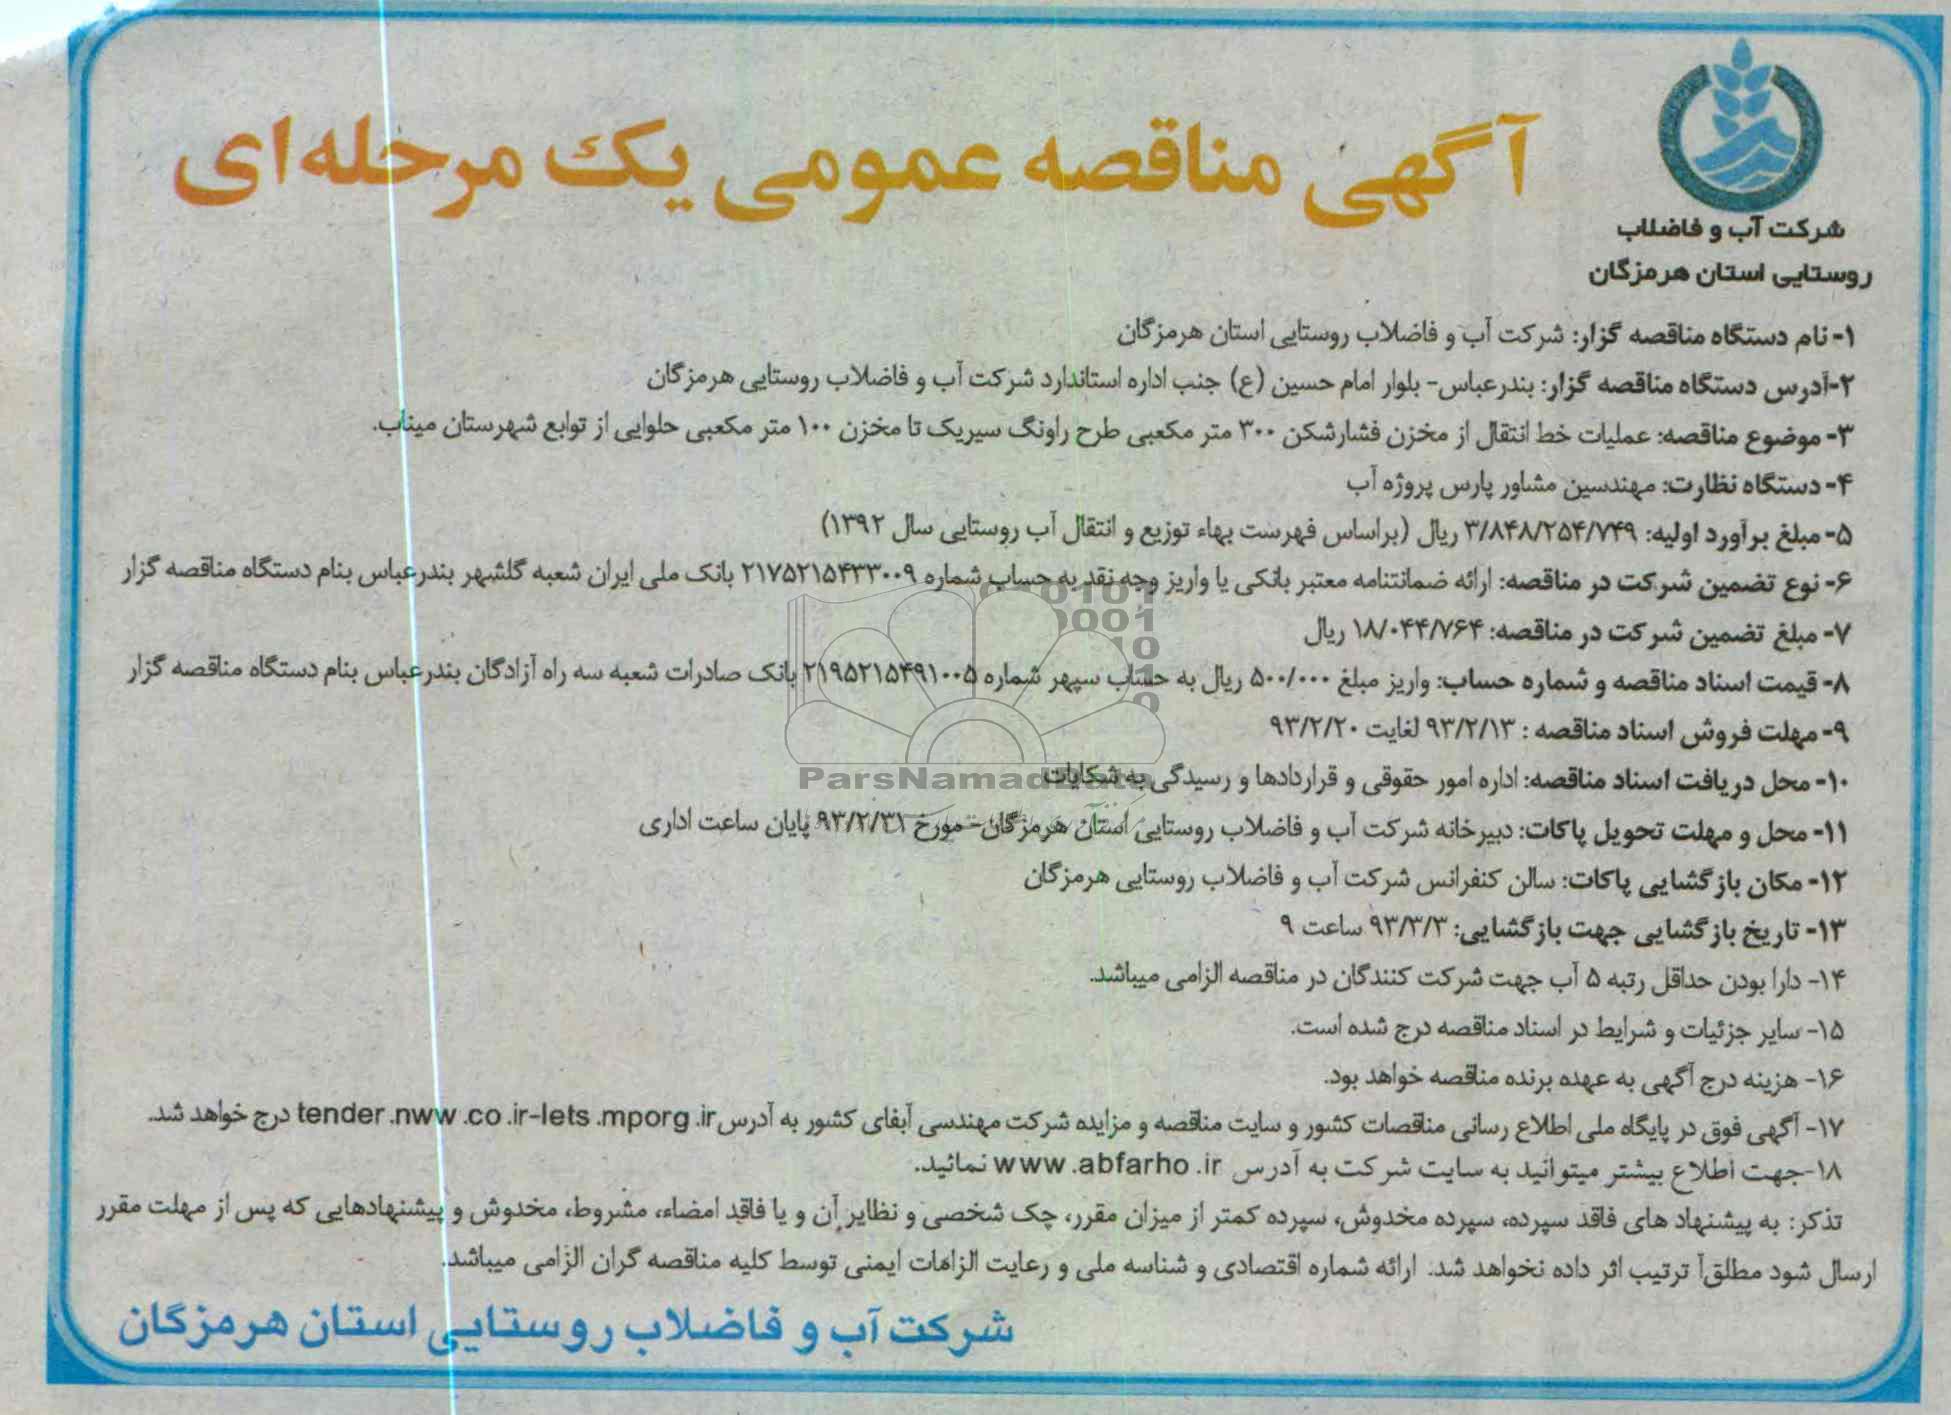 شرکت آب و فاضلاب
روستایی استان هرمزگان
آگهی مناقصه عمومی یک مرحله‌ای
۱- نام دستگاه مناقصه گزار: شرکت آب و فاضلاب روستایی استان هرمزگان
۲-آدرس دستگاه مناقصه گزار: بندرعباس- بلوار امام حسین (ع) جنب اداره استاندارد شرکت آب و فاضلاب روستایی هرمزگان
۳- موضوع مناقصه: عملیات خط انتقال از مخزن فشارشکن ۳۰۰ متر مکعبی طرح راونگ سیریک تا مخزن ۱۰۰ متر مکعبی حلوایی از توابع شهرستان میناب.
۴- دستگاه نظارت: مهندسین مشاور پارس پروژه آب
۵- مبلغ برآورد اولیه: ۳/۸۴۸/۲۵۴/۷۴۹ ریال (براساس فهرست بهاء توزیع و انتقال آب روستایی سال ۱۳۹۲)
۶- نوع تضمین شرکت در مناقصه: ارائه ضمانتنامه معتبر بانکی یا واریز وجه نقد به حساب شماره ۲۱۷۵۲۱۵۴۳۳۰۰۹ بانک ملی ایران شعبه گلشهر بندرعباس بنام دستگاه مناقصه گزار
۷- مبلغ تضمین شرکت در مناقصه: ۱۸/۰۴۴/۷۶۴ ریال
۸- قیمت اسناد مناقصه و شماره حساب: واریز مبلغ ۵۰۰/۰۰۰ ریال به حساب سپهر شماره ۲۱۹۵۲۱۵۴۹۱۰۰۵ بانک صادرات شعبه سه راه آزادگان بندرعباس بنام دستگاه مناقصه گزار
۹- مهلت فروش اسناد مناقصه : ۹۳/۲/۱۳ لغایت ۹۳/۲/۲۰
۱۰- محل دریافت اسناد مناقصه: اداره امور حقوقی و قراردادها و رسیدگی به شکایات
ParsNamadData
۱۱- محل و مهلت تحویل پاکات: دبیرخانه شرکت آب و فاضلاب روستایی استان هرمزگان- مورخ ۹۳/۲/۳۱ پایان ساعت اداری
۱۲- مکان بازگشایی پاکات: سالن کنفرانس شرکت آب و فاضلاب روستایی هرمزگان
۱۳- تاریخ بازگشایی جهت بازگشایی: ۹۳/۳/۳ ساعت ۹
۱۴- دارا بودن حداقل رتبه ۵ آب جهت شرکت کنندگان در مناقصه الزامی میباشد.
۱۵- سایر جزئیات و شرایط در اسناد مناقصه درج شده است.
۱۶- هزینه درج آگهی به عهده برنده مناقصه خواهد بود.
۱۷- آگهی فوق در پایگاه ملی اطلاع رسانی مناقصات کشور و سایت مناقصه و مزایده شرکت مهندسی آبفای کشور به آدرس tender.nww.co.ir-Iets.mporg.ir درج خواهد شد.
۱۸-جهت اطلاع بیشتر میتوانید به سایت شرکت به آدرس www.abfarho.ir نمائید.
تذکر: به پیشنهاد های فاقد سپرده، سپرده مخدوش، سپرده کمتر از میزان مقرر، چک شخصی و نظایر آن و یا فاقد امضاء، مشروط، مخدوش و پیشنهادهایی که پس از مهلت مقرر
ارسال شود مطلقاً ترتیب اثر داده نخواهد شد. ارائه شماره اقتصادی و شناسه ملی و رعایت الزامات ایمنی توسط کلیه مناقصه گران الزامی میباشد.
شرکت آب و فاضلاب روستایی استان هرمزگان